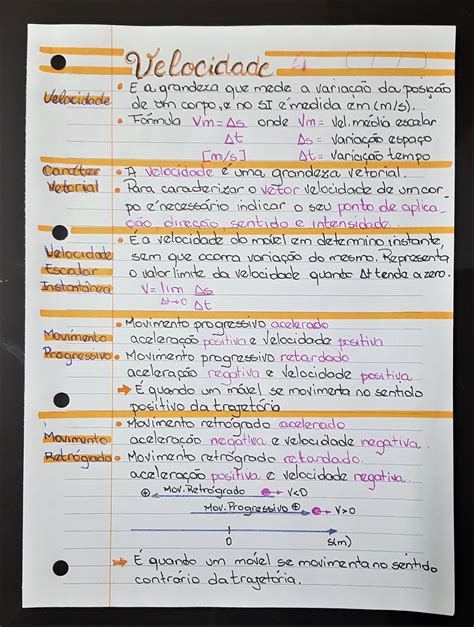 Velocidade
Velocidade
• É a grandeza que mede a variação da posição
de um corpo, e no SI é medida em (m/s).
• Fórmula Vm = Δs onde Vm = vel. média escalar
Δt Δs = variação espaço
[m/s] Δt = variação tempo
Caráter Vetorial
• A velocidade é uma grandeza vetorial.
• Para caracterizar o vetor velocidade de um cor-
po é necessário indicar o seu ponto de aplica-
ção, direção, sentido e intensidade.
Velocidade Escalar Instantânea
• É a velocidade do móvel em determino instante,
sem que ocorra variação do mesmo. Representa
o valor limite da velocidade quando Δt tende a zero.
V = lim Δs
Δt→0 Δt
Movimento Progressivo
• Movimento progressivo acelerado
aceleração positiva e velocidade positiva
• Movimento progressivo retardado
aceleração negativa e velocidade positiva
→ É quando um móvel se movimenta no sentido
positivo da trajetória
Movimento Retrógrado
• Movimento retrógrado acelerado
aceleração negativa e velocidade negativa.
• Movimento retrógrado retardado.
aceleração positiva e velocidade negativa
Mov. Retrógrado V<0
Mov. Progressivo V>0
0 s(m)
→ É quando um móvel se movimenta no sentido
contrário da trajetória.